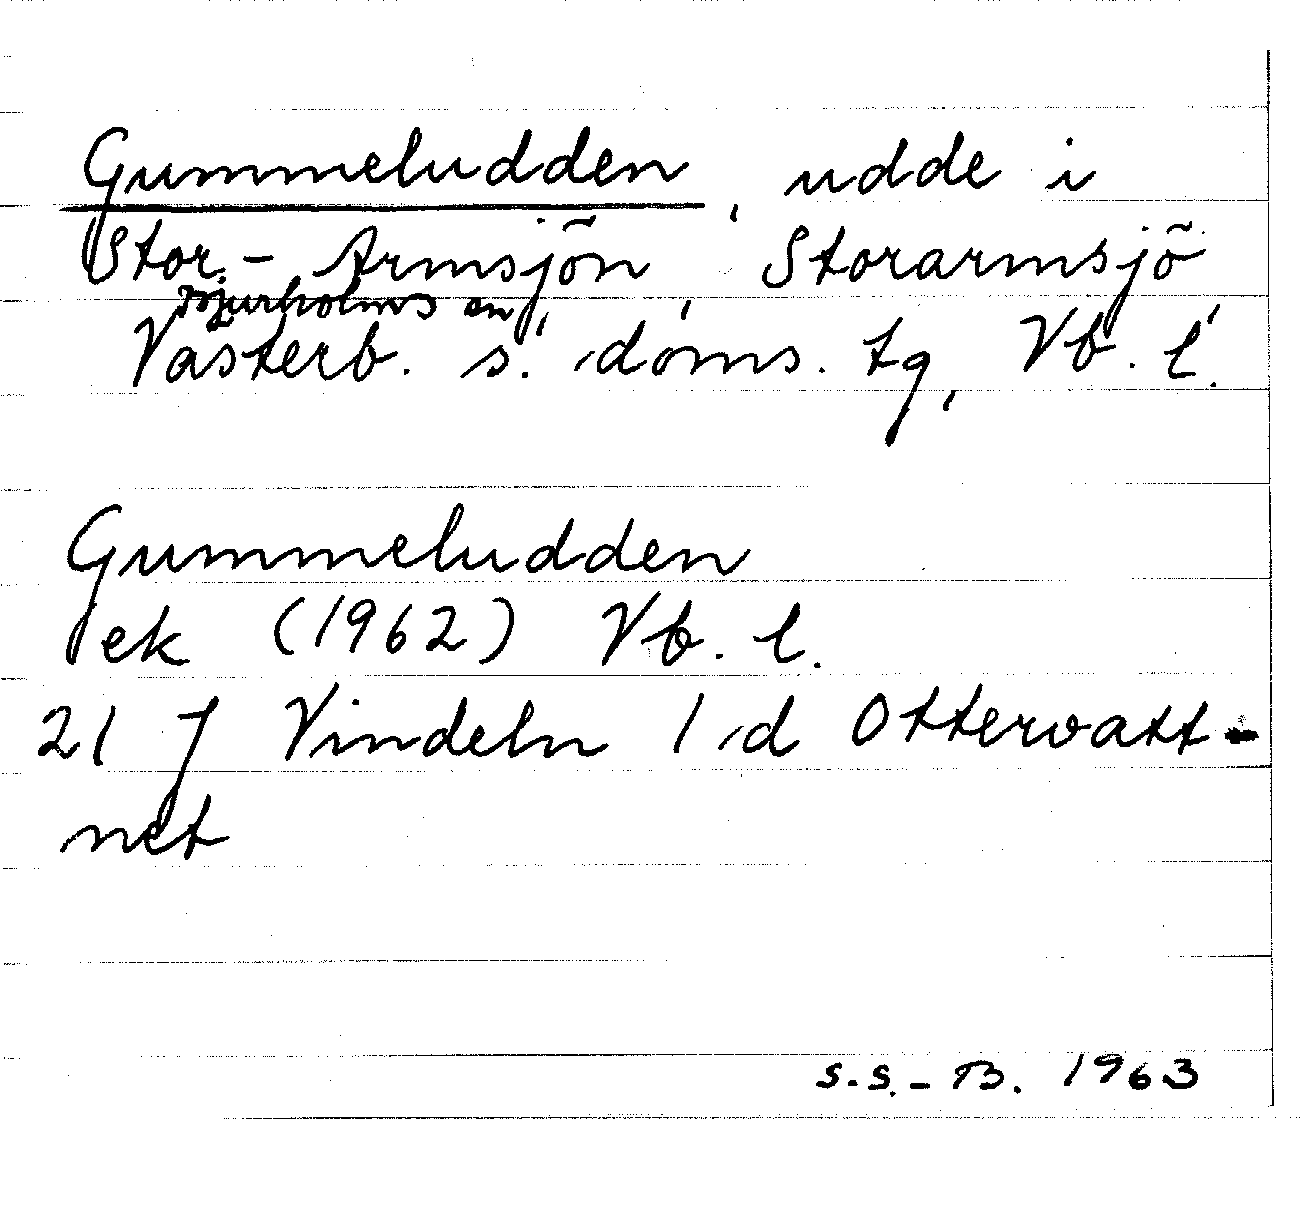 Gummeludden, udde i
Stor-Armsjön, Storarmsjö,
Bjurholms sn,
Västerb. s. doms. tg, Vb. l.
Gummeludden
ek (1962) Vb. l.
21 J Vindeln 1 d Ottervatt-
net
S.S.-B. 1963